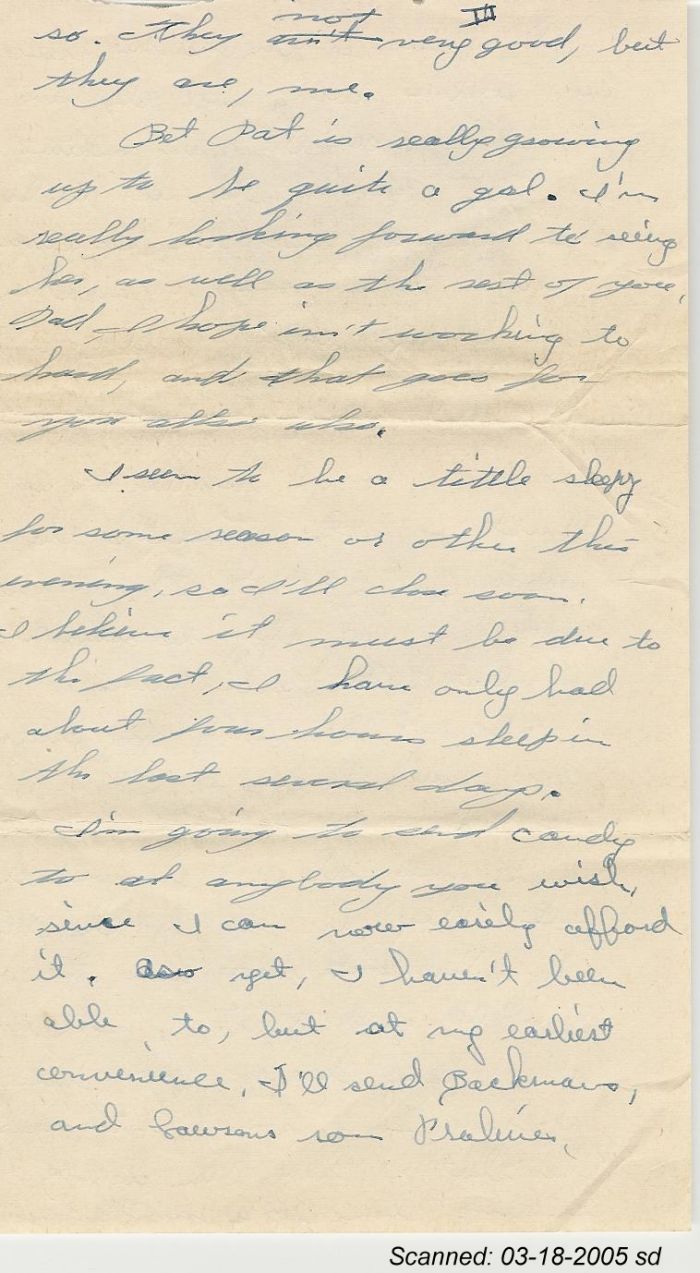 not III
so. They ain't very good, but
they are, me.
Bet Pat is really growing
up to be quite a gal. I'm
really looking forward to seeing
her, as well as the rest of you,
Dad, I hope isn't working to
hard, and that goes for
you also.
I seem to be a little sleepy
for some reason or other this
evening, so I'll close soon.
I believe it must be due to
the fact, I have only had
about four hours sleep in
the last several days.
I'm going to send candy
to at anybody you wish,
since I can now easily afford
it. yet, I haven't been
able to, but at my earliest
convenience, I'll send
and som Pralines,
Scanned: 03-18-2005 sd